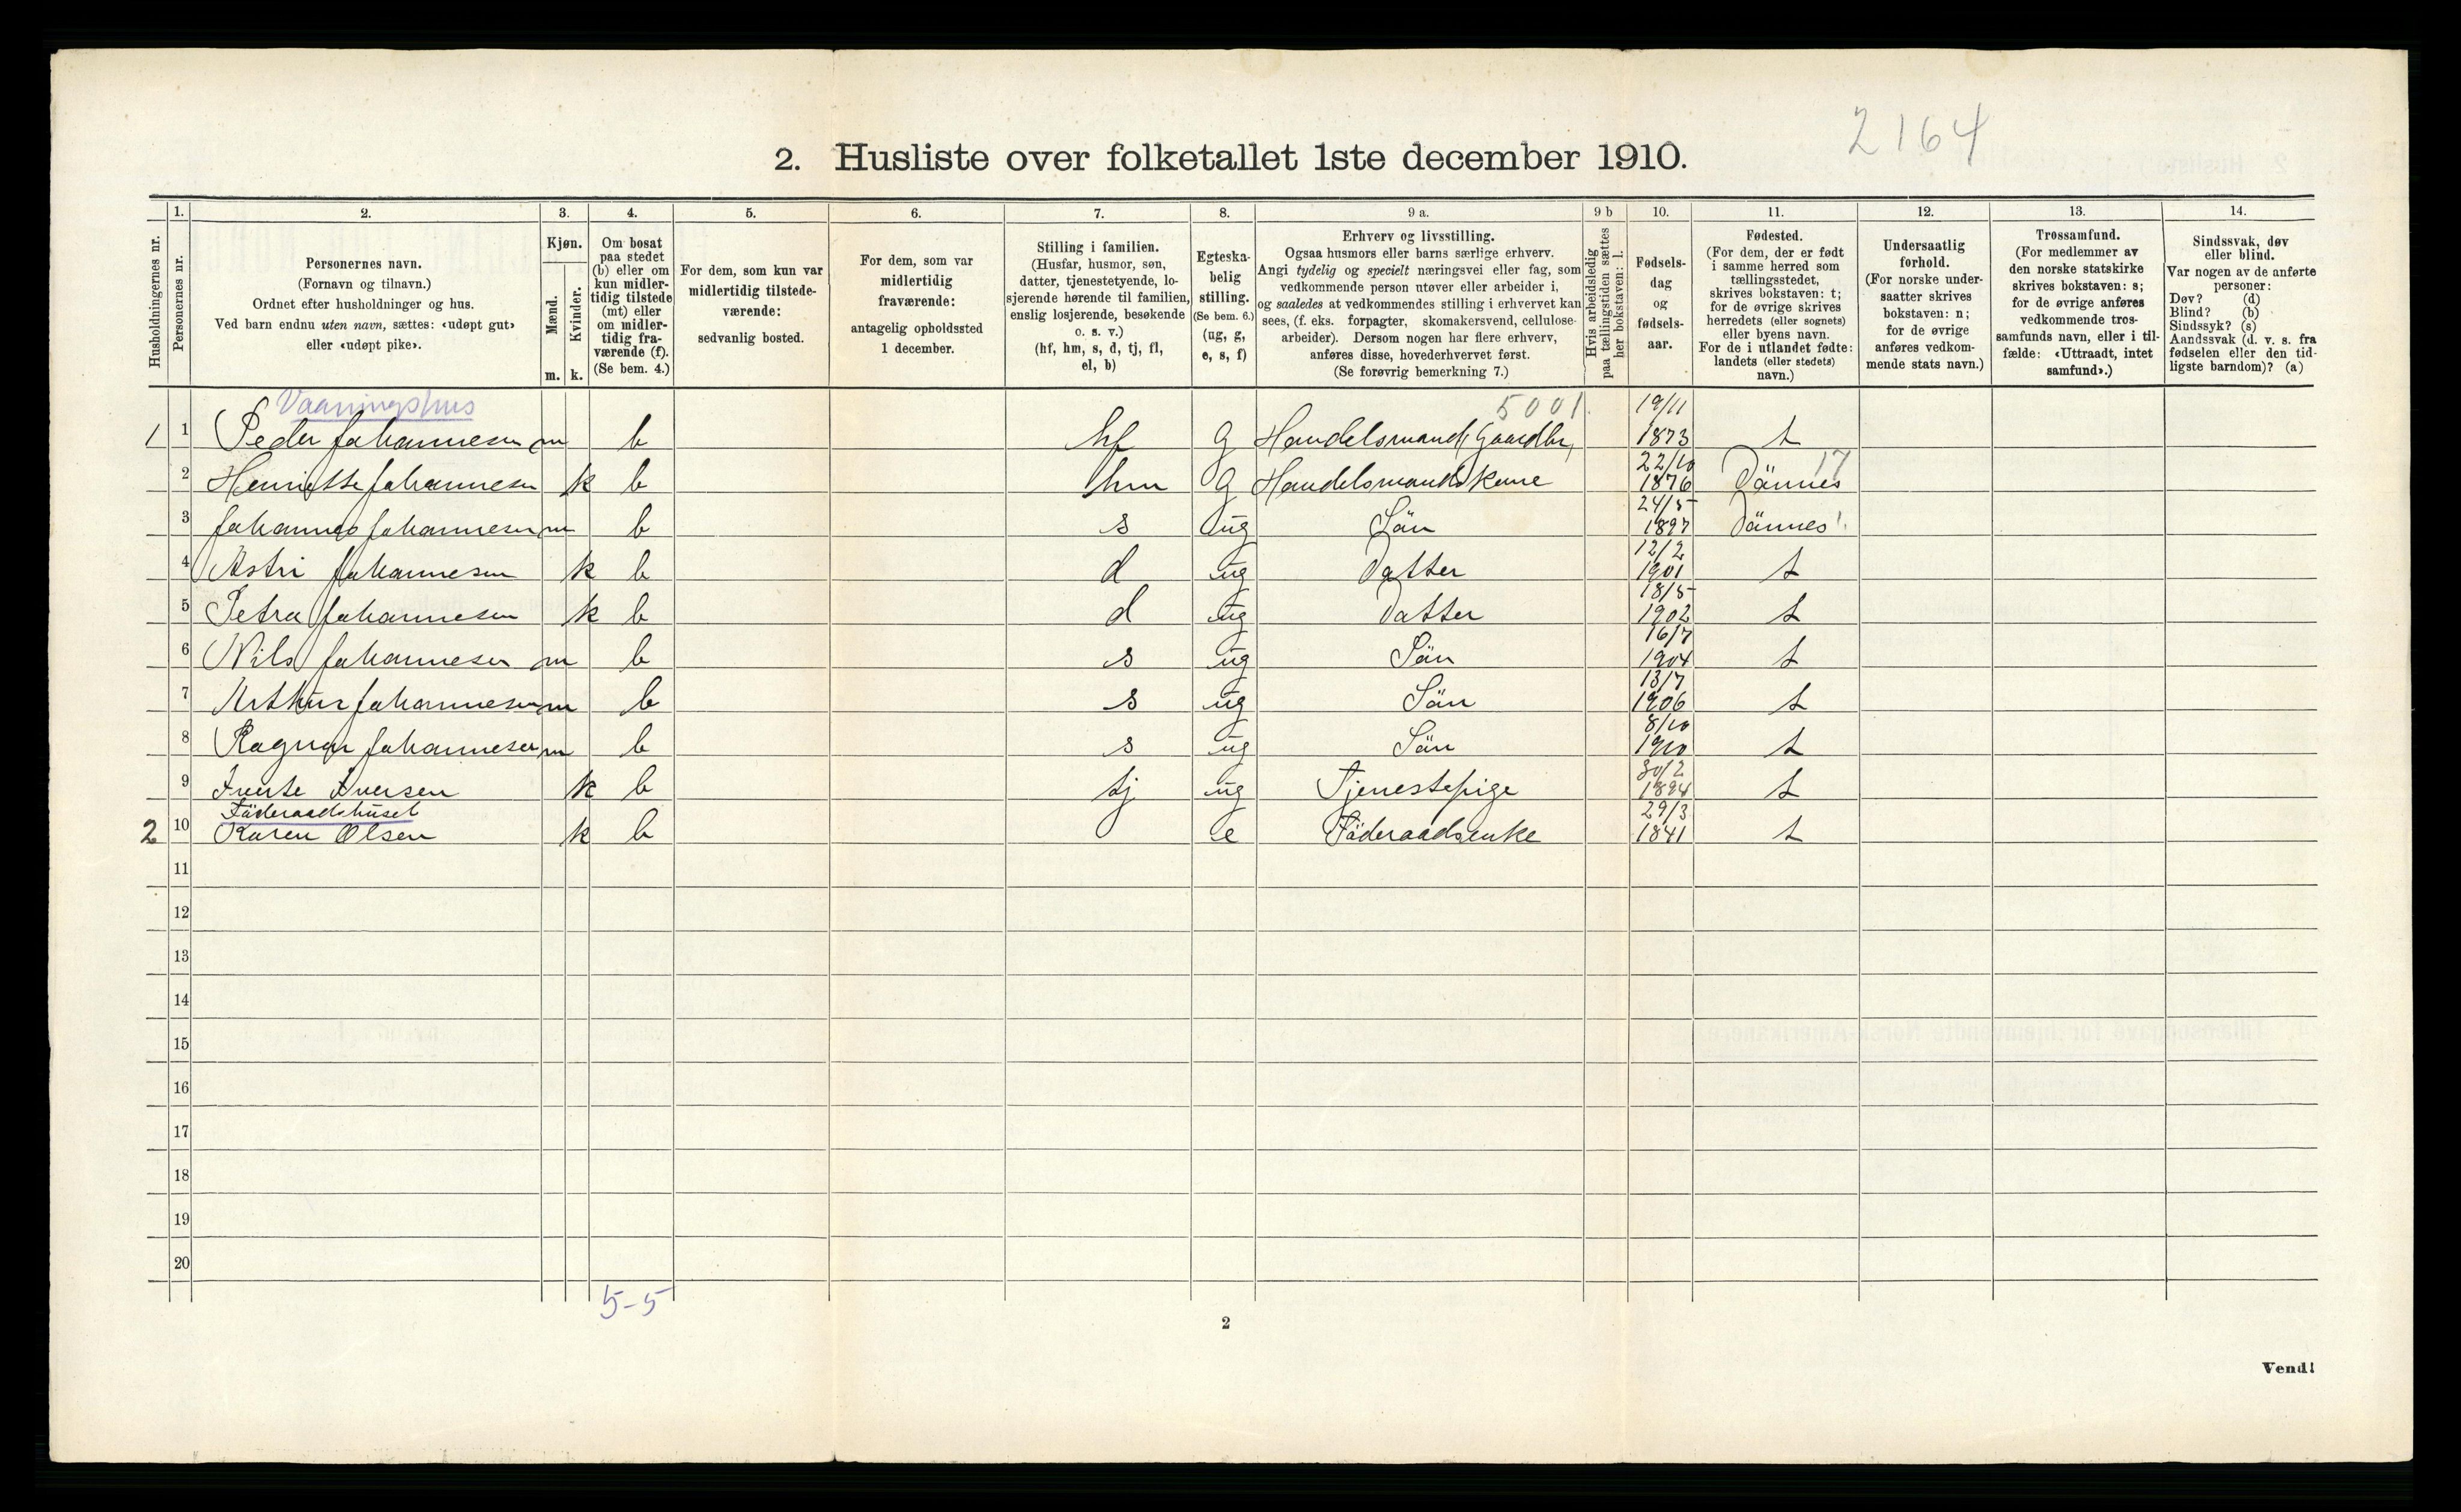 2164
2. Husliste over folketallet 1ste december 1910.
Husholdningernes nr.
1. Personernes nr.
2. Personernes navn.
(Fornavn og tilnavn.)
Ordnet efter husholdninger og hus.
Ved barn endnu uten navn, sættes: «udøpt gut»
eller «udøpt pike».
3. Kjøn.
Mænd. m.
Kvinder. k.
4. Om bosat
paa stedet
(b) eller om
kun midler-
tidig tilstede
(mt) eller
om midler-
tidig fra-
værende (f).
(Se bem. 4.)
5. For dem, som kun var
midlertidig tilstede-
værende:
sedvanlig bosted.
6. For dem, som var
midlertidig
fraværende:
antagelig opholdssted
1 december.
7. Stilling i familien.
(Husfar, husmor, søn,
datter, tjenestetyende, lo-
sjerende hørende til familien,
enslig losjerende, besøkende
o. s. v.)
(hf, hm, s, d, tj, fl,
el, b)
8. Egteska-
belig
stilling.
(Se bem. 6.)
(ug, g,
e, s, f)
9 a. Erhverv og livsstilling.
Ogsaa husmors eller barns særlige erhverv.
Angi tydelig og specielt næringsvei eller fag, som
vedkommende person utøver eller arbeider i,
og saaledes at vedkommendes stilling i erhvervet kan
sees, (f. eks. forpagter, skomakersvend, cellulose-
arbeider). Dersom nogen har flere erhverv,
anføres disse, hovederhvervet først.
(Se forøvrig bemerkning 7.)
9 b Hvis arbeidsledig
paa tællingstiden sættes
her bokstaven: l.
10. Fødsels-
dag
og
fødsels-
aar.
11. Fødested.
(For dem, der er født
i samme herred som
tællingsstedet,
skrives bokstaven: t;
for de øvrige skrives
herredets (eller sognets)
eller byens navn.
For de i utlandet fødte:
landets (eller stedets)
navn.)
12. Undersaatlig
forhold.
(For norske under-
saatter skrives
bokstaven: n;
for de øvrige
anføres vedkom-
mende stats navn.)
13. Trossamfund.
(For medlemmer av
den norske statskirke
skrives bokstaven: s;
for de øvrige anføres
vedkommende tros-
samfunds navn, eller i til-
fælde: «Uttraadt, intet
samfund».)
14. Sindssvak, døv
eller blind.
Var nogen av de anførte
personer:
Døv? (d)
Blind? (b)
Sindssyk? (s)
Aandssvak (d. v. s. fra
fødselen eller den tid-
ligste barndom)? (a)
Vaaningshus 5001. 19/11
1 1 Peder Johannesen m b hf g Handelsmand, Gaardbr, 1873 t
22/10 17
2 Henriette Johannesen k b hm g Handelsmandskone 1876 Dännes
24/5
3 Johannes Johannesen m b s ug Sön 1897 Dännes
12/2
4 Astri Johannesen k b d ug Datter 1901 t
18/5
5 Petra Johannesen k b d ug Datter 1902 t
16/7
6 Nils Johannesen m b s ug Sön 1904 t
13/7
7 Arthur Johannesen m b s ug Sön 1906 t
8/10
8 Ragnar Johannesen m b s ug Sön 1910 t
9 Iverte Iversen k b tj ug Tjenestepige 1894 t
Föderaadshuset 29/3
2 10 Karen Olsen k b e Föderaadsenke 1841 t
11
12
13
14
15
16
17
18
19
20
5-5
2
Vend!